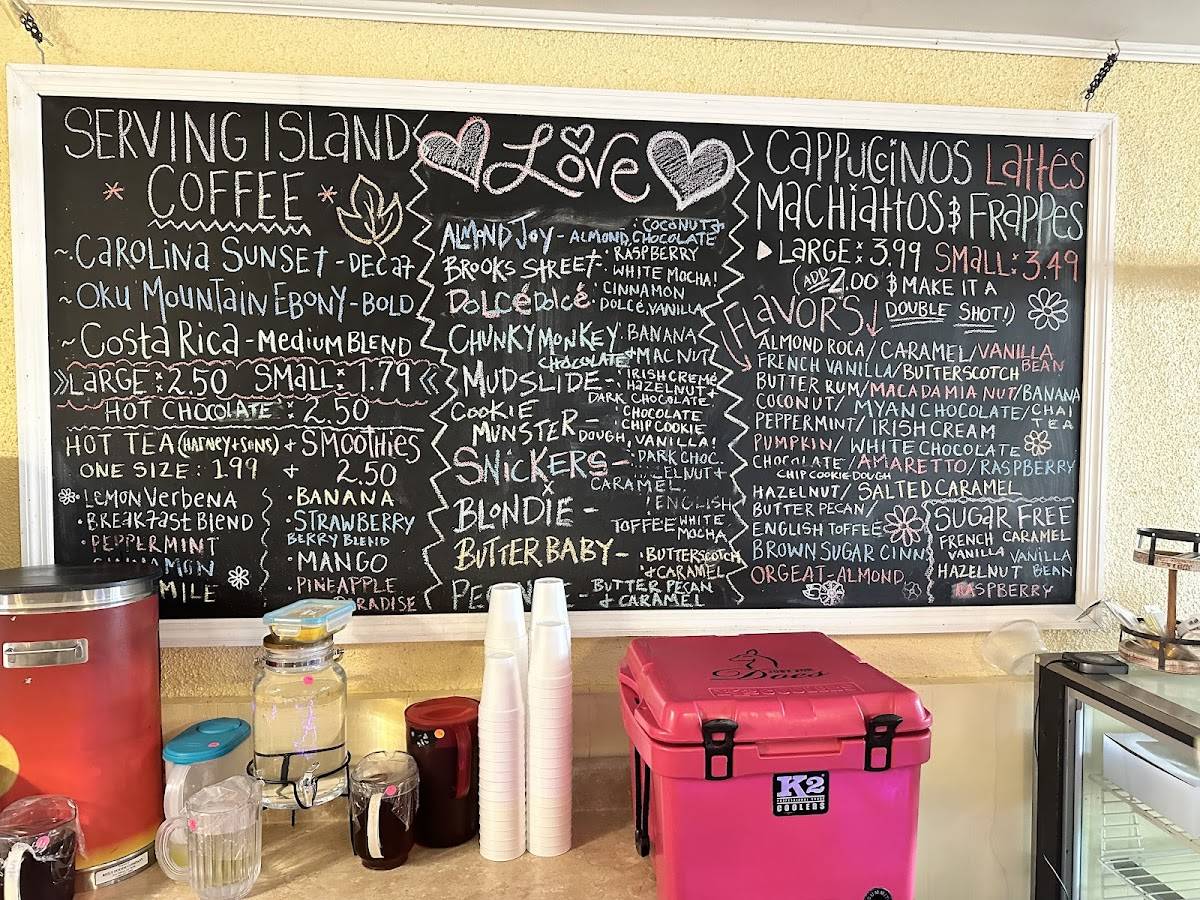 SERVING ISLAND
* COFFEE *
~CAROLINA SUNSET - DECAF
~OKU MOUNTAIN EBONY - BOLD
~COSTA RICA - MEDIUM BLEND
»LARGE: 2.50 SMALL: 1.79«
HOT CHOCOLATE: 2.50
HOT TEA (HARNEY & SONS) & SMOOTHIES
ONE SIZE: 1.99 & 2.50
LEMON VERBENA
• BREAKFAST BLEND
• PEPPERMINT
CINNAMON
MILE
• BANANA
• STRAWBERRY
BERRY BLEND
• MANGO
• PINEAPPLE
LOVE
ALMOND JOY - ALMOND, COCONUT & CHOCOLATE
BROOKS STREET - RASPBERRY
WHITE MOCHA!
DOLCÉ DOLCÉ: CINNAMON
DOLCÉ, VANILLA
CHUNKY MONKEY: BANANA
CHOCOLATE & MAC NUT
MUDSLIDE - : IRISH CREME
HAZELNUT &
DARK CHOCOLATE
COOKIE MUNSTER - : CHOCOLATE
CHIP COOKIE
DOUGH, VANILLA!
SNICKERS - : DARK CHOC.
CARAMEL
BLONDIE - ENGLISH
TOFFEE WHITE
MOCHA
BUTTER BABY - : BUTTERSCOTCH
& CARAMEL
BUTTER PECAN
& CARAMEL
CAPPUCCINOS LATTÉS
MACHIATTOS $ FRAPPES
LARGE: 3.99 SMALL: 3.49
(ADD 2.00 $ MAKE IT A
DOUBLE SHOT!)
FLAVORS
ALMOND ROCA/ CARAMEL/ VANILLA
BEAN
FRENCH VANILLA/ BUTTERSCOTCH
BUTTER RUM/ MACADAMIA NUT/ BANANA
COCONUT/ MYAN CHOCOLATE/ CHAI
TEA
PEPPERMINT/ IRISH CREAM
PUMPKIN/ WHITE CHOCOLATE
CHOCOLATE/ AMARETTO/ RASPBERRY
CHIP COOKIE DOUGH
HAZELNUT/ SALTED CARAMEL
BUTTER PECAN/
ENGLISH TOFFEE
BROWN SUGAR CINN
ORGEAT-ALMOND
SUGAR FREE
FRENCH CARAMEL
VANILLA VANILLA
HAZELNUT BEAN
RASPBERRY
JUST FOR
Does
K2
COOLERS